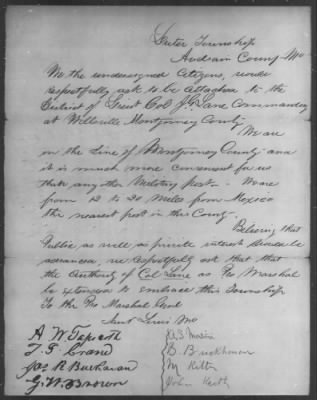 Township
Audrain County Mo
We the undersigned Citizens, would
respectfully ask to be attached to the
District of Lieut Col J. G. Lane Commanding
at Wellsville Montgomery County
We are
on the Line of Montgomery County and
it is much more convenient for us
than any other Military post. We are
from 12 to 20 miles from Mexico
the nearest post in this County.
Believing that
Public as well as private interest would be
advanced we respectfully ask that that
the authority of Col Lane as Pro Marshal
be extended to embrace this Township
To the Pro Marshal Genl
Saint Louis Mo
A W
T. S. Crand
Jas R Buchanan
G. W. Brown
B.
John Keith